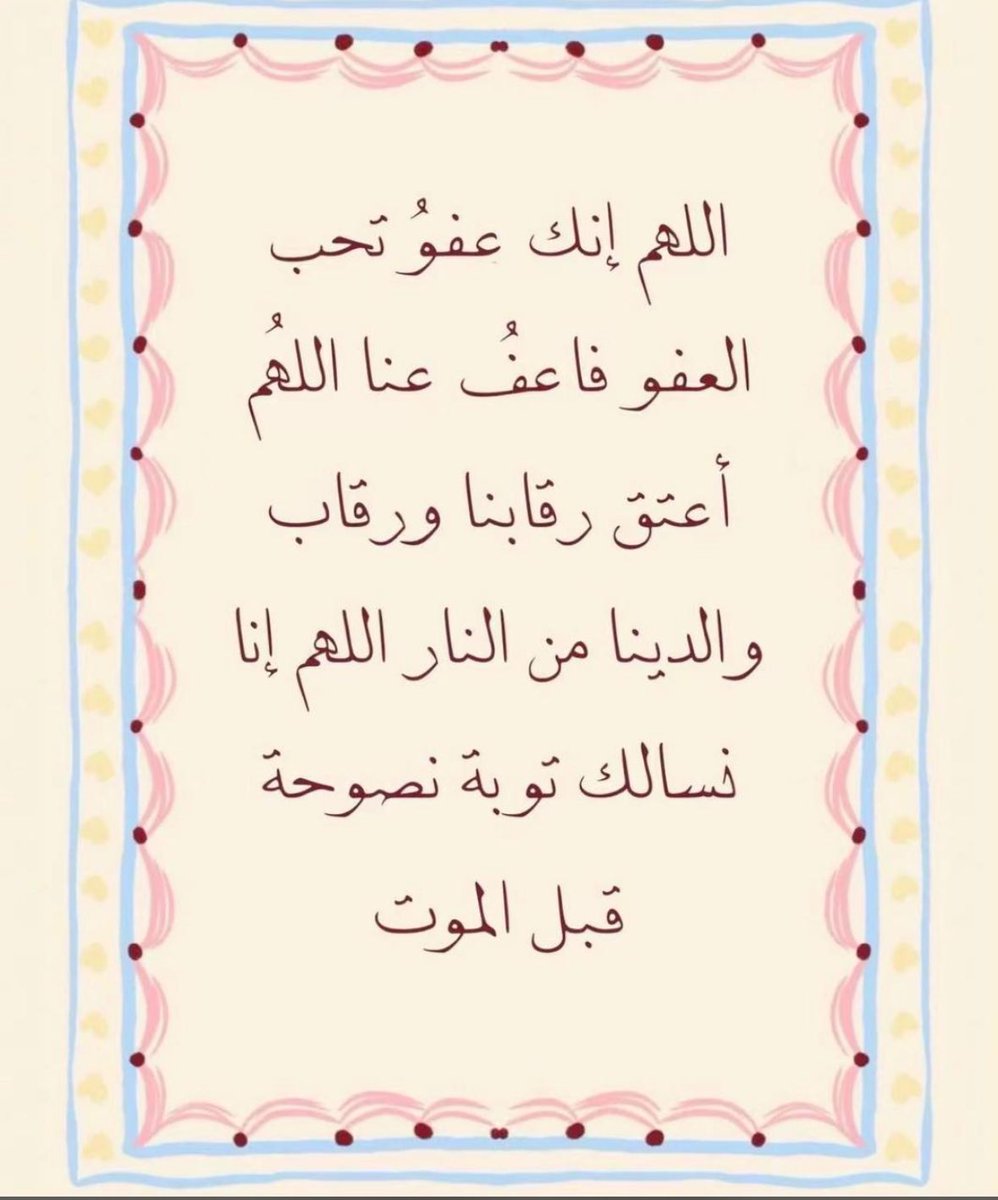 اللهم إنك عفوُ تحب
العفو فاعفُ عنا اللهُم
أعتق رقابنا ورقاب
والدينا من النار اللهم إنا
نسالك توبة نصوحة
قبل الموت